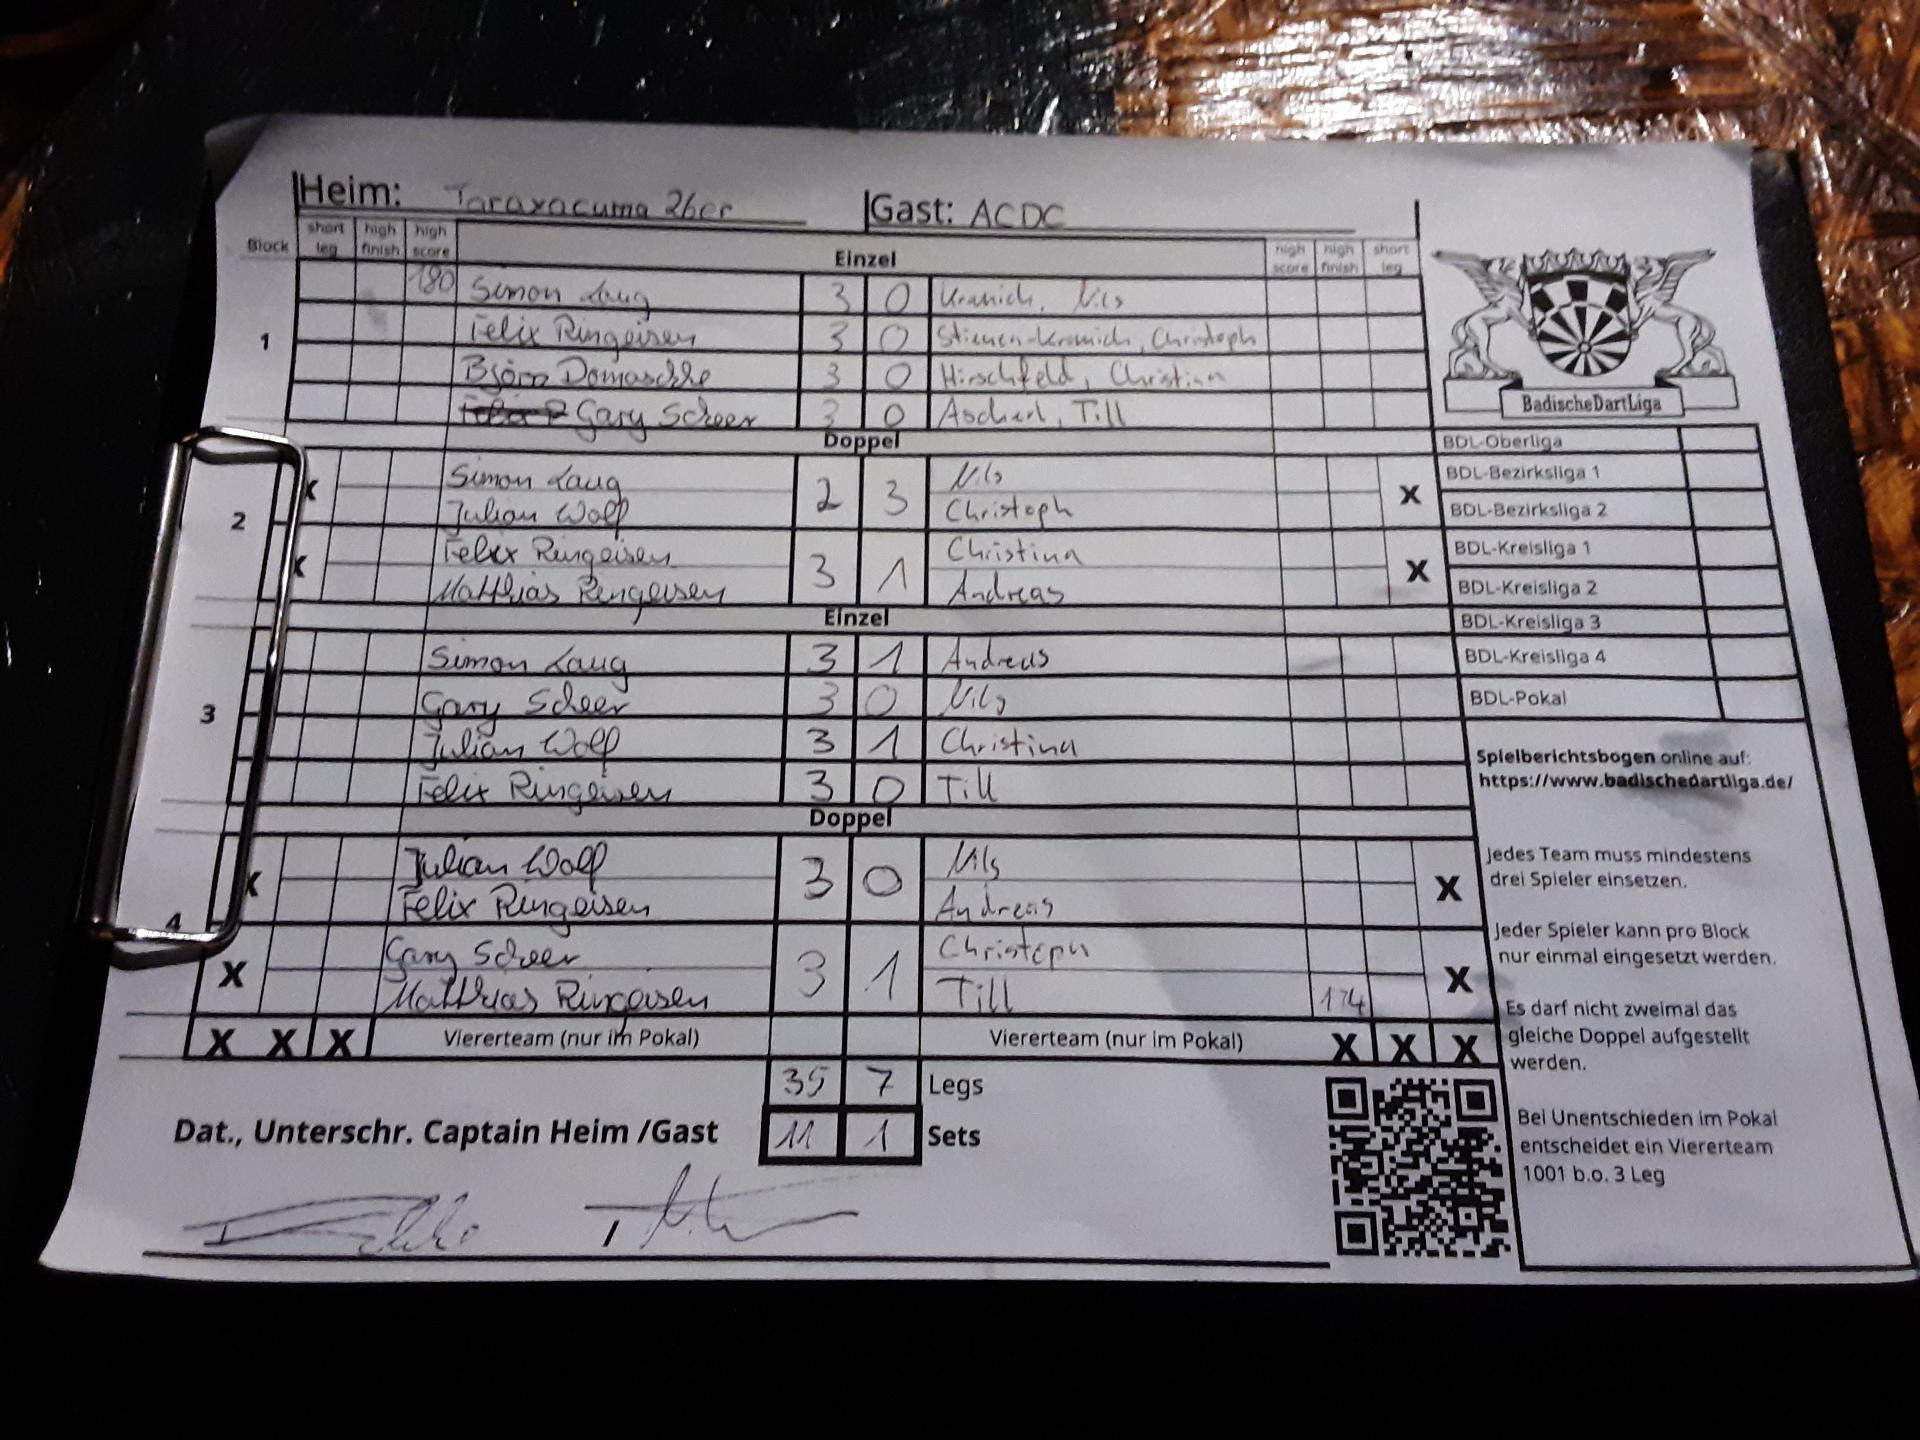 Heim: Taraxacuma 26er Gast: ACDC
Block short leg high finish high score Einzel high score high finish short leg
180 Simon Laug 3 0 Kranich, Nils
1 Felix Ringeisen 3 0 Stienen-Kranich, Christoph
Björn Domaschke 3 0 Hirschfeld, Christina
Gary Scheer 3 0 Ascherl, Till
Doppel
Simon Laug 2 3 Nils
2 X Julian Wolf Christoph X
Felix Ringeisen 3 1 Christina
X Matthias Ringeisen Andreas X
Einzel
Simon Laug 3 1 Andreas
3 Gary Scheer 3 0 Nils
Julian Wolf 3 1 Christina
Felix Ringeisen 3 0 Till
Doppel
Julian Wolf 3 0 Nils
X Felix Ringeisen Andreas X
4 Gary Scheer 3 1 Christoph
X Matthias Ringeisen Till 174 X
X X X Viererteam (nur im Pokal) Viererteam (nur im Pokal) X X X
35 7 Legs
Dat., Unterschr. Captain Heim /Gast 11 1 Sets
BadischeDartLiga
BDL-Oberliga
BDL-Bezirksliga 1
BDL-Bezirksliga 2
BDL-Kreisliga 1
BDL-Kreisliga 2
BDL-Kreisliga 3
BDL-Kreisliga 4
BDL-Pokal
Spielberichtsbogen online auf:
https://www.badischedartliga.de/
Jedes Team muss mindestens
drei Spieler einsetzen.
Jeder Spieler kann pro Block
nur einmal eingesetzt werden.
Es darf nicht zweimal das
gleiche Doppel aufgestellt
werden.
Bei Unentschieden im Pokal
entscheidet ein Viererteam
1001 b.o. 3 Leg